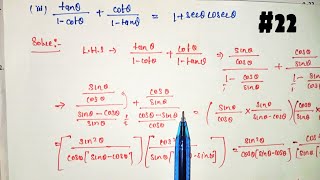 (iii) tanθ/1-cotθ + cotθ/1-tanθ = 1+secθ cosecθ
#22
Solve:-
L.H.S → tanθ/1-cotθ + cotθ/1-tanθ ⇒ sinθ/cosθ / 1- cosθ/sinθ + cosθ/sinθ / 1- sinθ
⇒ sinθ/cosθ / sinθ-cosθ/sinθ + cosθ/sinθ / cosθ-sinθ/cosθ = (sinθ/cosθ × sinθ/sinθ-cosθ)(cosθ/sinθ
⇒ [sin²θ/cosθ[sinθ-cosθ]] [cos²θ/sinθ[ -sinθ]] = sin²θ/cosθ[sinθ-cosθ]